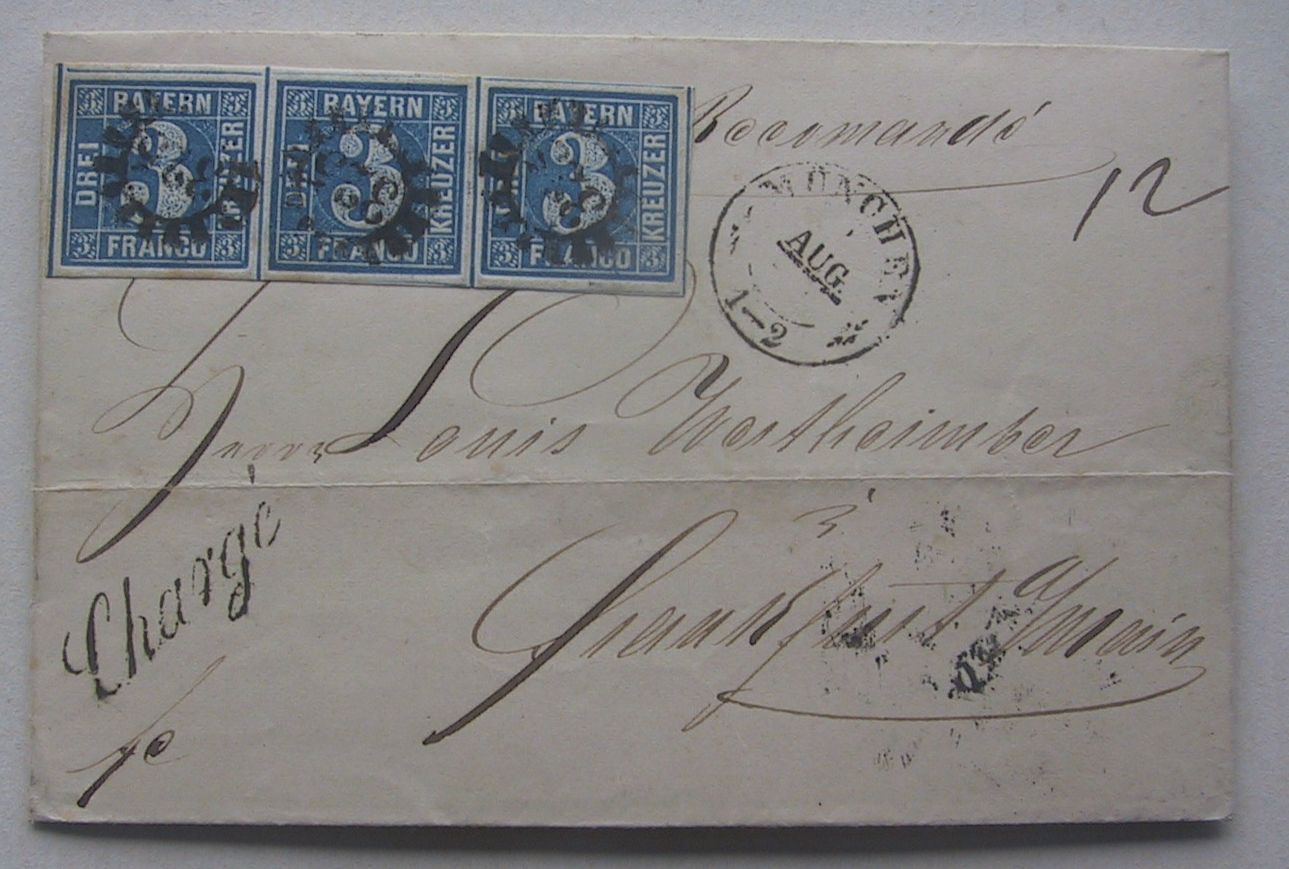 3 BAYERN 3
DREI 3 KREUZER
3 FRANCO 3
3 BAYERN 3
DREI 3 KREUZER
3 FRANCO 3
3 BAYERN 3
3 KREUZER
3 FRANCO 3
Recomandé
12
MÜNCHEN
AUG.
1—2
Herrn Louis Wertheimber
3
Frankfurt a/Main
Chargé